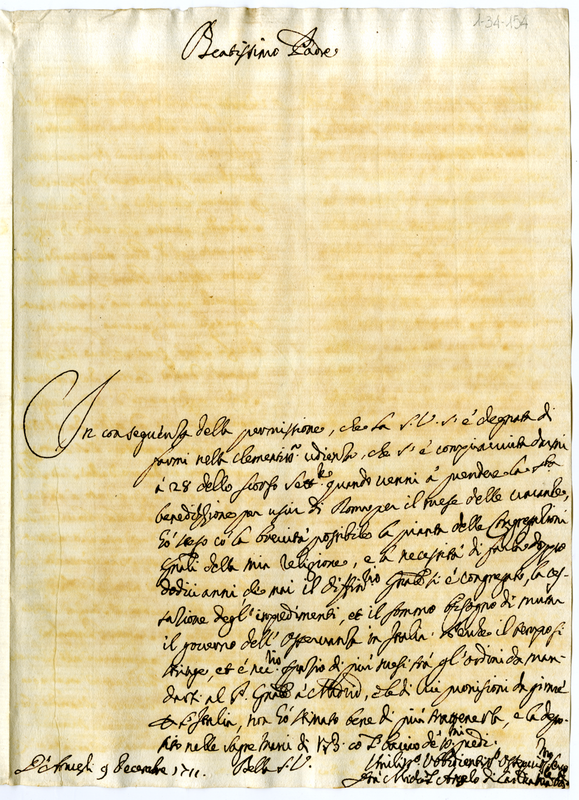 1-34-154
Beatissimo Padre
In conseguenza della permissione, che la S. V. s'è degnata di
farmi nella clementissa udienza, che s'è compiacciuta darmi
à 28 dello scorso Sette quando venni à prendere la sta
benedizzione per uscir di Roma per il mese delle vacanze,
hò steso cò la brevità possibile la pianta delle Congregazioni
Grali della mia religione, e la necessità di farla doppo
dodici anni che mai il Diffinrio Grale si è congregato, la ces-
sazione degl'impedimenti, et il sommo bisogno di mutar
il governo dell'osservanza in Italia. il tempo si
stringe, et è necrio spazio di più mesi frà gl'ordini da man-
darsi al P. Grale à Madrid, e la di lui provisioni da
Italia, non hò stimato bene di più trattenerla, e la depo-
sito nelle sagre mani di V. B. cò l'bacio de' Ssmi piedi.
9 Decembre 1711. Della S. V.
Umilissmo Vbbidientissmo
Angelo di